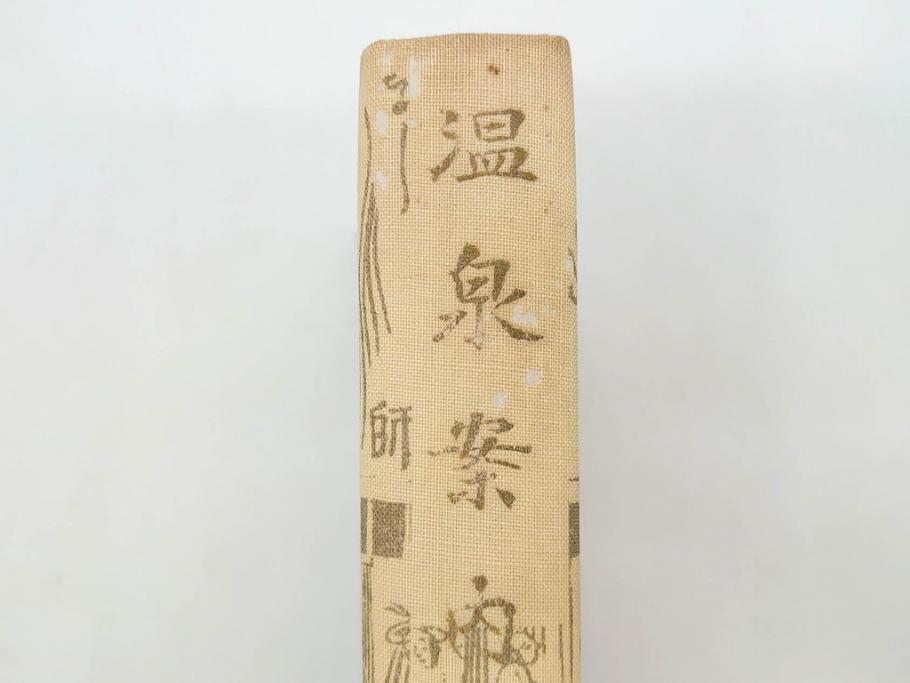 温泉案内
師